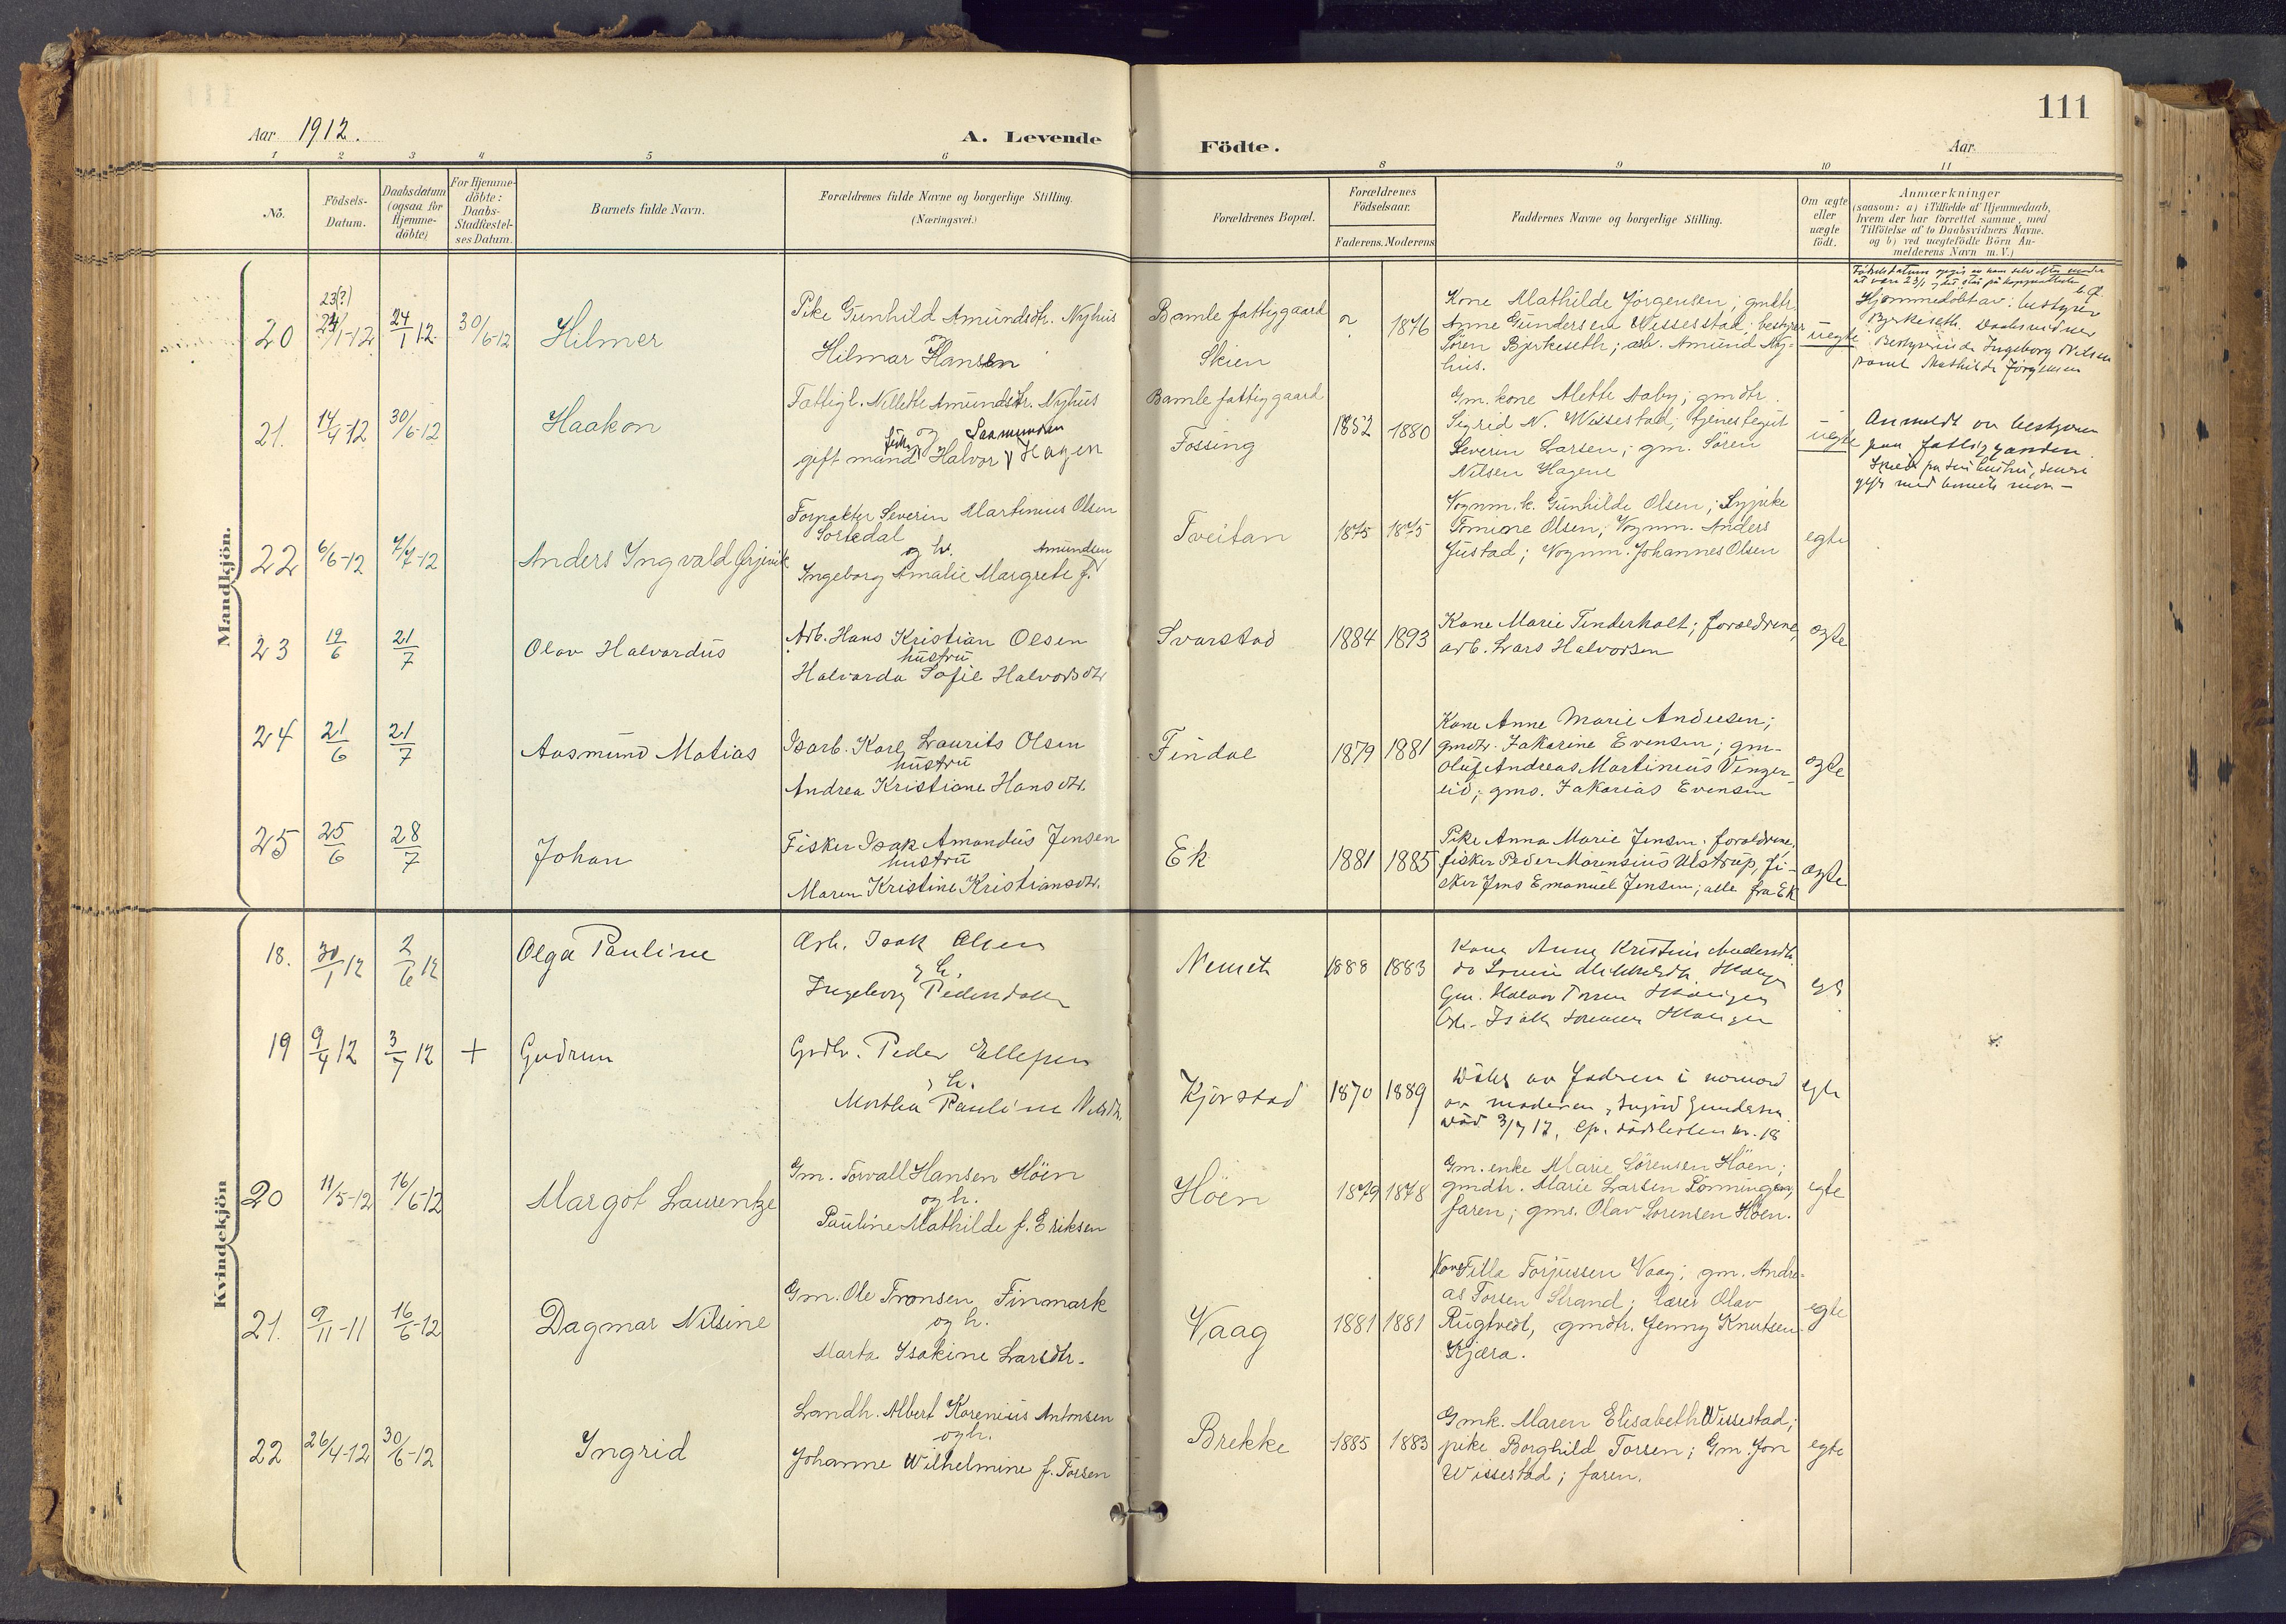 111
Aar 1912.
A. Levende
Födte.
Aar
1 2 3 4 5 6 8 9 10 11
No.
Födsels-
Datum.
Daabsdatum
(ogsaa for
Hjemme-
döbte)
For Hjemme-
döbte:
Daabs-
Stadfæstel-
ses Datum.
Barnets fulde Navn.
Forældrenes fulde Navne og borgerlige Stilling.
(Næringsvei.)
Forældrenes Bopæl.
Forældrenes
Födselsaar.
Faderens. Moderens
Faddernes Navne og borgerlige Stilling.
Om ægte
eller
uægte
födt.
Anmærkninger
(saasom: a) i Tilfælde af Hjemmedaab,
hvem der har forrettet samme, med
Tilföielse af to Daabsvidners Navne.
og b) ved uægtefödte Börn An-
melderens Navn m. V.)
Mandkjön.
20
23(?)
24/1-12
24/1 12
30/6-12
Hilmer
Pike Gunhild Amundsdtr. Nyhus
og
Hilmar Hansen
Bamle fattiggaard
Skien
1876
Kone Mathilde Jörgensen; gmdtr.
Anne Gundersen Wissestad; bestyrer
Sören Bjerkeseth; arb. Amund Ny-
hus.
uegte
Hjemmedöbt av: bestyrer
Bjerkeseth. Daabsvidner
Bestyrerinde Ingeborg Nilsen
samt Mathilde Jörgensen
21.
14/4-12
30/6-12
Haakon
Fattigl. Nillette Amundsdtr. Nyhus
og Saamunden
gift mand Halvor Hagen
Bamle fattiggaard
Fossing
1852 1880
Gm. kone Alette Aaby; gmdtr.
Sigrid N. Wissestad; tjenestegut
Severin Larsen; gm. Sören
Nilsen Hagene
uegte
Anmeldt av bestyreren
paa fattiggaarden.
22
6/6-12
7/7-12
Anders Ingvald
Forpakter Severin Martinius Olsen
Sortedal
og h. Amundsen
Ingeborg Amalie Margrete f.
Tveitan
1875 1875
Vognm. k. Gunhilde Olsen; Sypike
Tomine Olsen; Vognm. Anders
Justad; Vognm. Johannes Olsen
egte
23
19/6
21/7
Olav Halvardus
Arb. Hans Kristian Olsen
hustru
Halvarda Sofie Halvorsdtr
Svarstad
1884 1893
Kone Marie Tinderholt; forældrene,
arb. Lars Halvorsen
ægte
24
21/6
21/7
Aasmund Matias
Isarb. Karl Laurits Olsen
hustru
Andrea Kristiane Hansdtr.
Findal
1879 1881
Kone Anne Marie Andresen;
gmdtr. Zakarine Evensen; gm-
Oluf Andreas Martinius Vinger-
eid; gms. Zakarias Evensen
ægte
25
25/6
28/7
Johan
Fisker Isak Amandus Jensen
hustru
Maren Kristine Kristiansdtr.
Ek
1881 1885
Pike Anna Marie Jensen. forældrene,
fisker Peder Marensius Ulstrup, fi-
sker Jens Emanuel Jensen; alle fra Ek
ægte
Kvindekjön
18.
30/1 12
2/6 12
Olga Pauline
Arb. Isak Olsen
og h.
Ingeborg Pedersdatter
1888 1883
Kone Anne Kristine
19
9/4 12
3/7 12
+
Gudrun
Grdbr. Peder Ellefsen
og h.
Martha Pauline Nilsdtr.
Kjörstad
1870 1889
Döbt av faderen i nærvær
av moderen
död 3/7 12, cfr. dödslisten nr. 18
egte
20
11/5-12
16/6-12
Margot Laurentze
Gm. Torvall Hansen Höen
og h.
Pauline Mathilde f. Eriksen
Höen
1879 1878
Gm. enke Marie Sörensen Höen;
gmdtr. Marie Larsen Rönningen;
faren; gms. Olav Sörensen Höen.
egte
21.
9/11-11
16/6-12
Dagmar Nilsine
Gm. Ole Tronsen Finmark
og h.
Marta Isakine Larsdtr.
Vaag
1881 1881
Kone Tilla Torjussen Vaag; gm. Andre-
as Torsen Strand; lærer Olav
Rugtvedt, gmdtr. Jenny Knutsen
Kjæra.
egte
22
26/4-12
30/6-12
Ingrid
Landh. Albert Korenius Antonsen
og h.
Johanne Wilhelmine f. Torsen
Brekke
1885 1883
Gmk. Maren Elisabeth Wissestad;
pike Borghild Torsen; Gm. Jon
Wissestad; faren.
egte